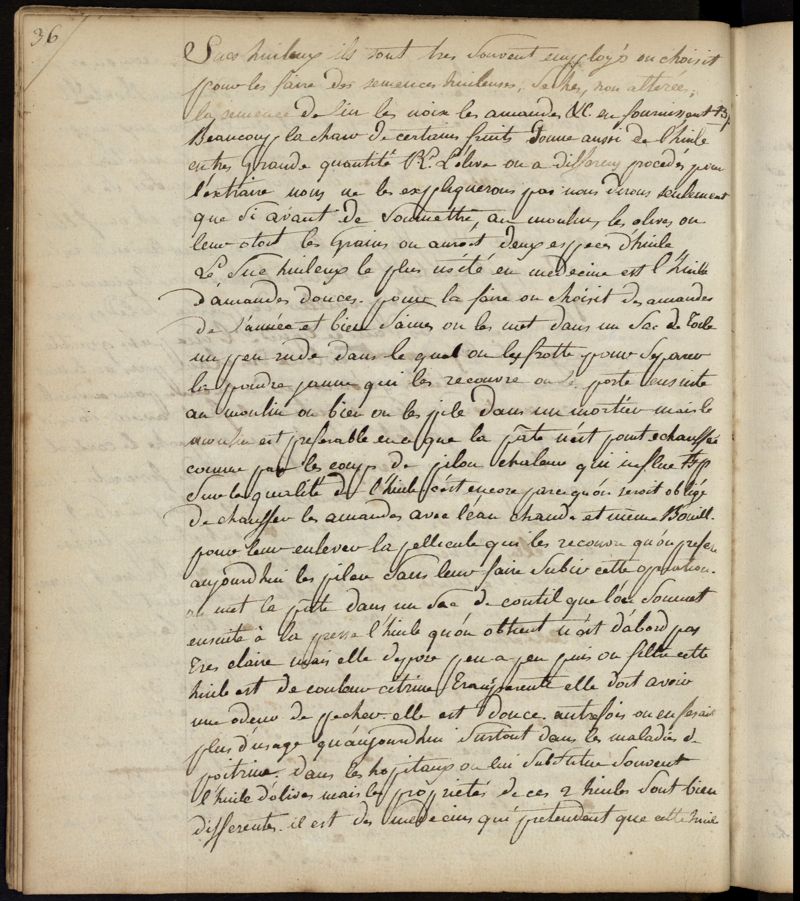 36
Sucs huileux ils sont tres souvent employés on choisit
pour les faire des semences huileuses, seches, non alterées;
la semence de lin les noix les amandes &C. en fournissent
Beaucoup la chair de certains fruits donne aussi de l'huile
en tres Grande quantité L'olive on a differens procedés pour
l'extraire nous ne les expliquerons pas nous dirons seulement
que si avant de soumettre au moulin les olives on
leur otoit les Grains on auroit deux especes d'huile
Le Suc huileux le plus usité en medecine est l'huile
d'amandes douces. pour la faire on choisit des amandes
de l'année et bien saines on les met dans un Sac de toile
un peu rude dans le quel on les frotte pour separer
la poudre jaune qui les recouvre on les porte ensuite
au moulin ou bien on les pile dans un mortier mais le
moulin est preferable en ce que la pâte n'est point echauffée
comme par les coups de pilon chaleur qui influe
Sur la qualité de l'huile c'est encore parce qu'on seroit obligé
de chauffer les amandes avec l'eau chaude et même Bouill.
pour leur enlever la pellicule qui les recouvre qu'on prefere
aujourdhui les piler sans leur faire subir cette operation.
on met la pâte dans un sac de coutil que l'on soumet
ensuite à la presse l'huile qu'on obtient n'est d'abord pas
tres claire mais elle depose peu a peu puis on filtre cette
huile est de couleur citrine transparente elle doit avoir
une odeur de pecher. elle est douce. autrefois on en faisait
plus d'usage qu'aujourdhui surtout dans les maladies de
poitrine. dans les hopitaux on lui substitue souvent
l'huile d'olives mais les propriétés de ces 2 huiles sont bien
differentes. il est des medecins qui pretendent que cette huile